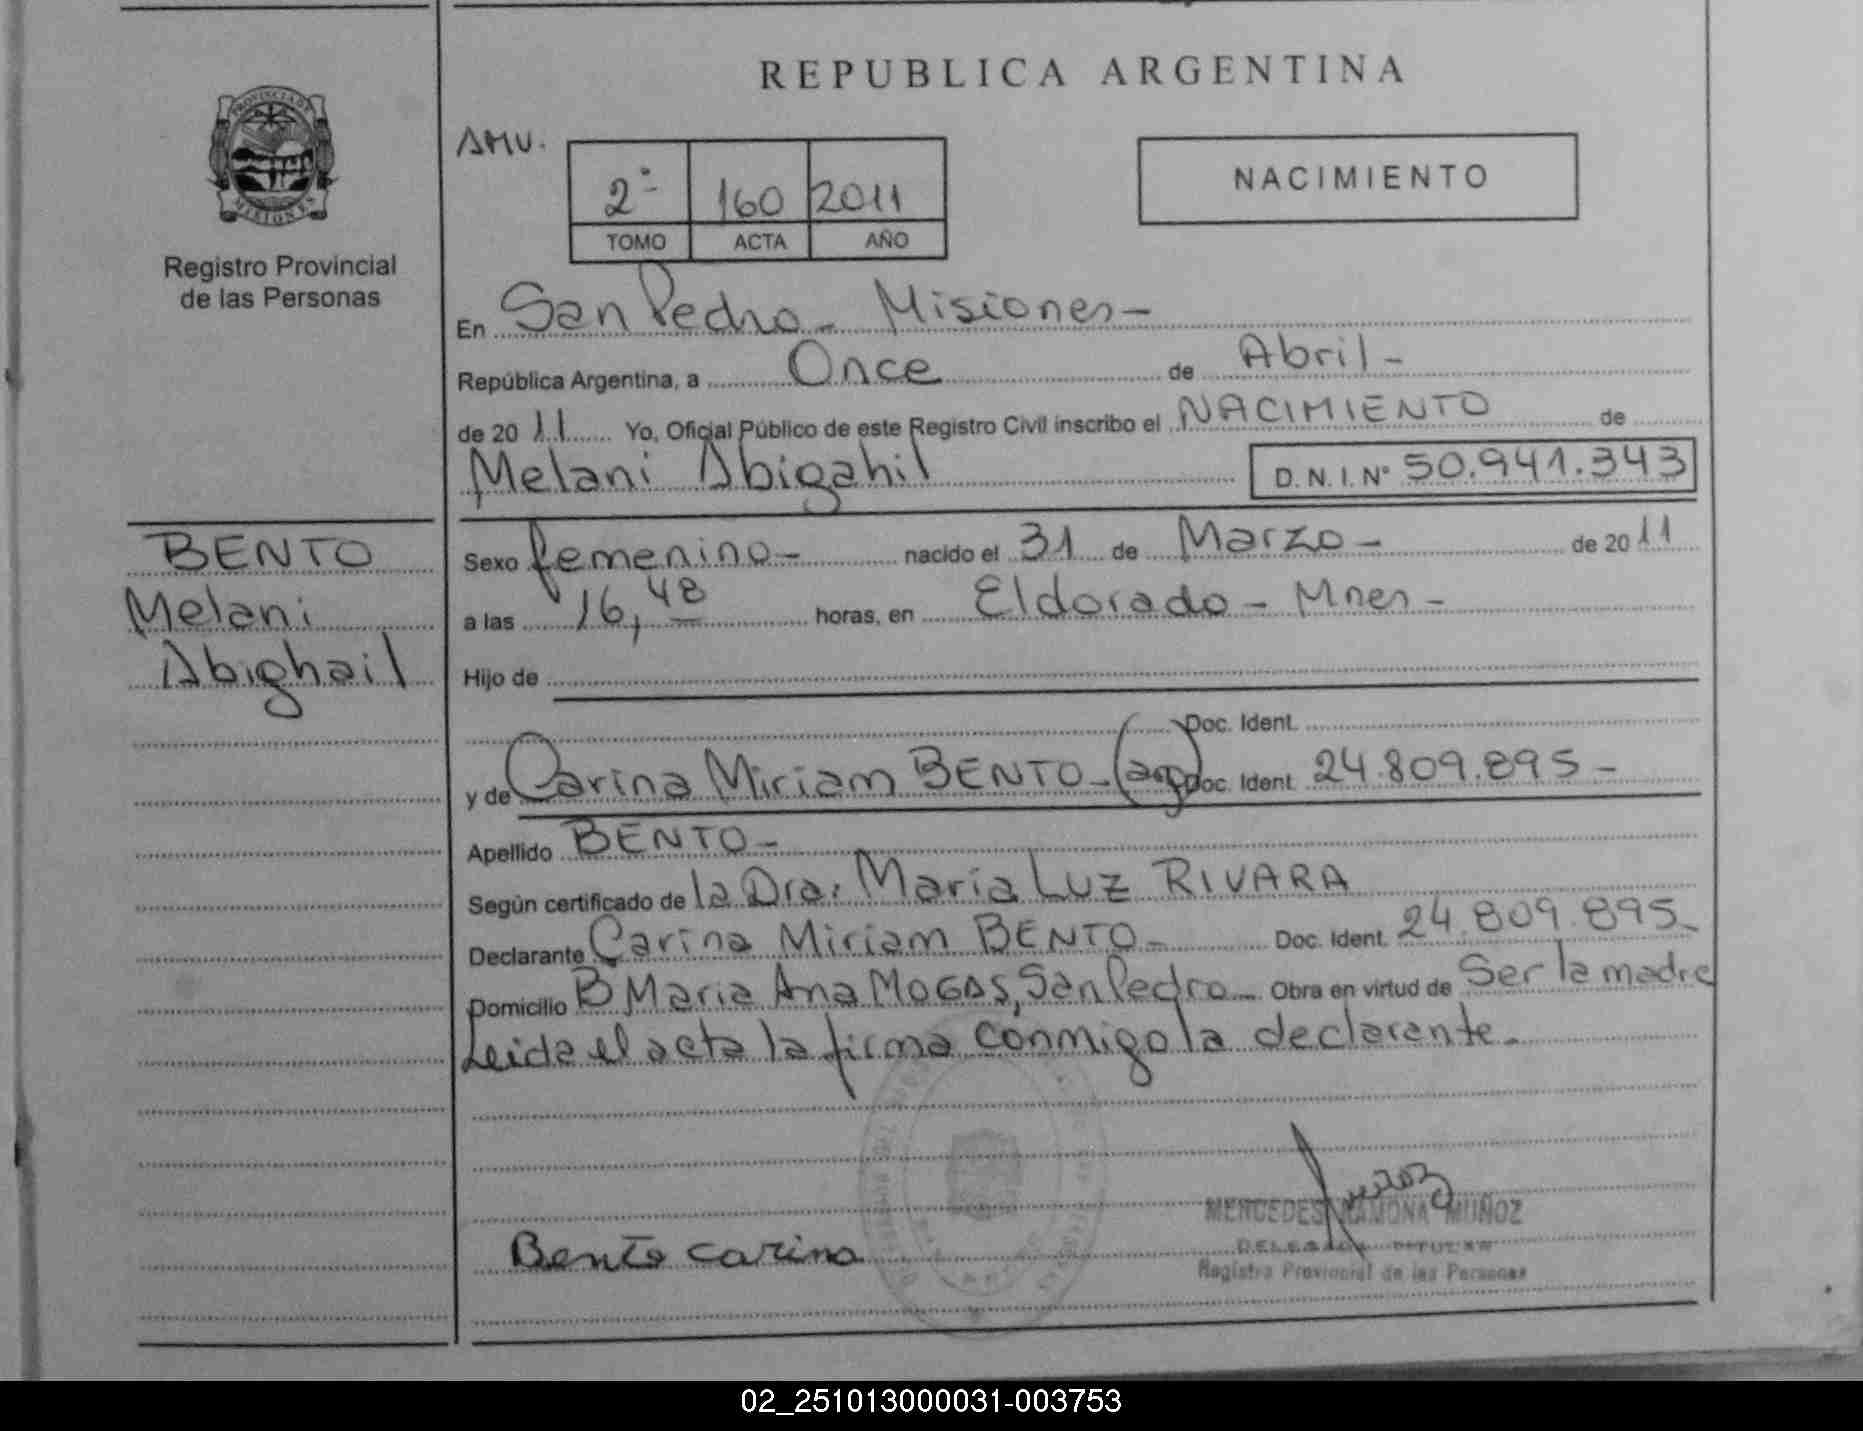 REPUBLICA ARGENTINA
AMV.
NACIMIENTO
2º 160 2011
TOMO ACTA AÑO
PROVINCIA DE MISIONES
Registro Provincial
de las Personas
En San Pedro - Misiones -
República Argentina, a Once de Abril -
de 20 11 Yo, Oficial Público de este Registro Civil inscribo el NACIMIENTO de
Melani Abigahil D.N.I.Nº 50.941.343
BENTO
Melani
Abighail
Sexo femenino - nacido el 31 de Marzo - de 20 11
a las 16,48 horas, en Eldorado - Mnes -
Hijo de
Doc. Ident.
y de Carina Miriam BENTO - (arg) Doc. Ident. 24.809.895 -
Apellido BENTO -
Según certificado de la Dra. Maria Luz RIVARA
Declarante Carina Miriam BENTO - Doc. Ident. 24.809.895 -
Domicilio B Maria Ana MOGAS, San Pedro - Obra en virtud de Ser la madre
Leida el acta la firma conmigo la declarante -
MERCEDES RAMONA MUÑOZ
DELEGADA TITULAR
Registro Provincial de las Personas
Bento carina
02_251013000031-003753